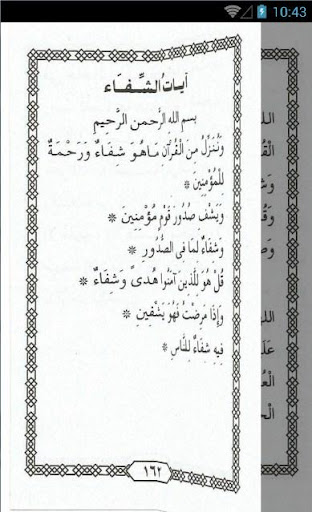 10:43
آيَاتُ الشِّفَاء
بسم الله الرَّحمن الرَّحِيم
وَنُنَزِّلُ مِنَ الْقُرْآنِ مَاهُوَ شِفَاءٌ وَرَحْمَةٌ
لِلْمُؤْمِنِينَ *
وَيَشْفِ صُدُورَ قَوْمٍ مُؤْمِنِينَ *
وَشِفَاءٌ لِمَا فِى الصُّدُورِ *
قُلْ هُوَ لِلَّذِينَ آمَنُوا هُدىً وَشِفَاءٌ *
وَإِذَا مَرِضْتُ فَهُوَ يَشْفِينِ *
فِيهِ شِفَاءٌ لِلنَّاسِ *
١٦٢